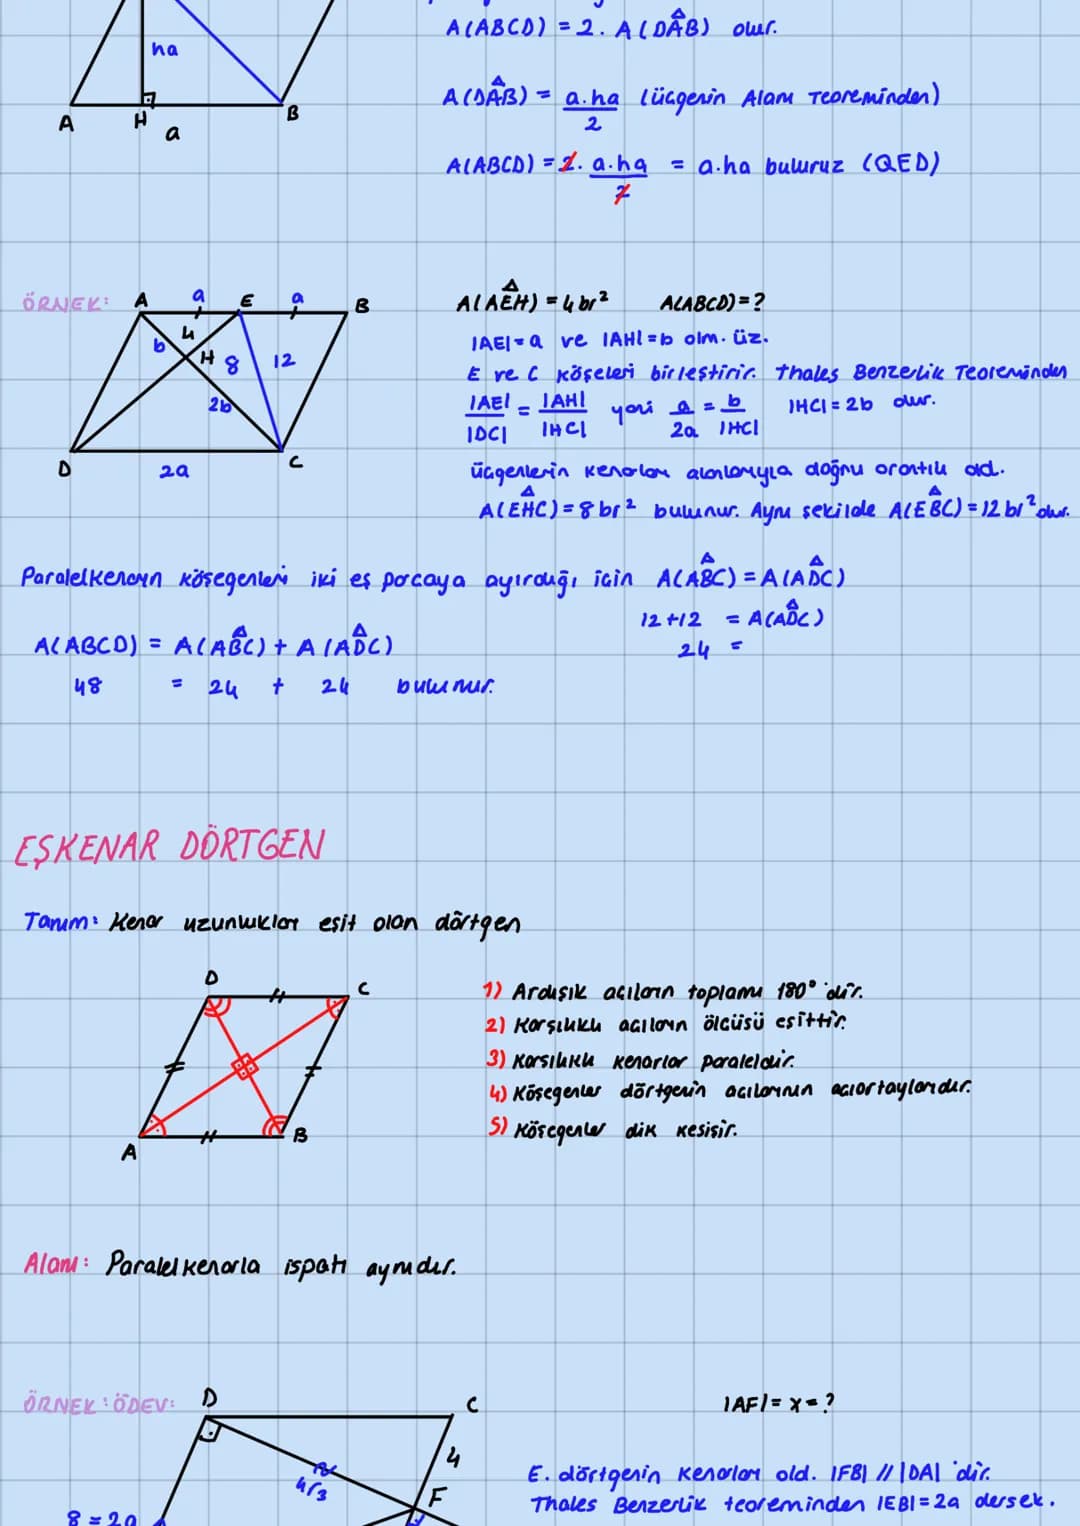 A(ABCD) = 2. A(DAB) olur.
ha
A(DAB) = a.ha/2 (üçgenin Alanı Teoreminden)
A H a B
A(ABCD) = 2. a.ha/2 = a.ha buluruz (QED)
ÖRNEK: A a E a B
A(AEH) = 4 br² A(ABCD) = ?
b 4 H 8 12
2b
D 2a C
|AE| = a ve |AH| = b olm. üz.
E ve C köşeleri birleştirir. Thales Benzerlik Teoreminden
|AE|/|DC| = |AH|/|HC| yani a/2a = b/|HC| |HC| = 2b olur.
üçgenlerin kenarları alanlarıyla doğru orantılı old.
A(EHC) = 8 br² bulunur. Aynı şekilde A(EBC) = 12 br² olur.
Paralelkenarın köşegenleri iki eş parçaya ayırdığı için A(ABC) = A(ADC)
12+12 = A(ADC)
24 =
A(ABCD) = A(ABC) + A(ADC)
48 = 24 + 24 bulunur.
EŞKENAR DÖRTGEN
Tanım: Kenar uzunlukları eşit olan dörtgen
D C
A B
1) Ardışık açıların toplamı 180° 'dir.
2) Karşılıklı açıların ölçüsü eşittir.
3) Karşılıklı kenarlar paraleldir.
4) Köşegenler dörtgenin açılarının açıortaylarıdır.
5) Köşegenler dik kesişir.
Alanı: Paralelkenarla ispatı aynıdır.
ÖRNEK: ÖDEV: D C
|AF| = x = ?
4
4√3
F
8 = 2a
E. dörtgenin kenarları old. |FB| // |DA| 'dir.
Thales Benzerlik teoreminden |EB| = 2a dersek.